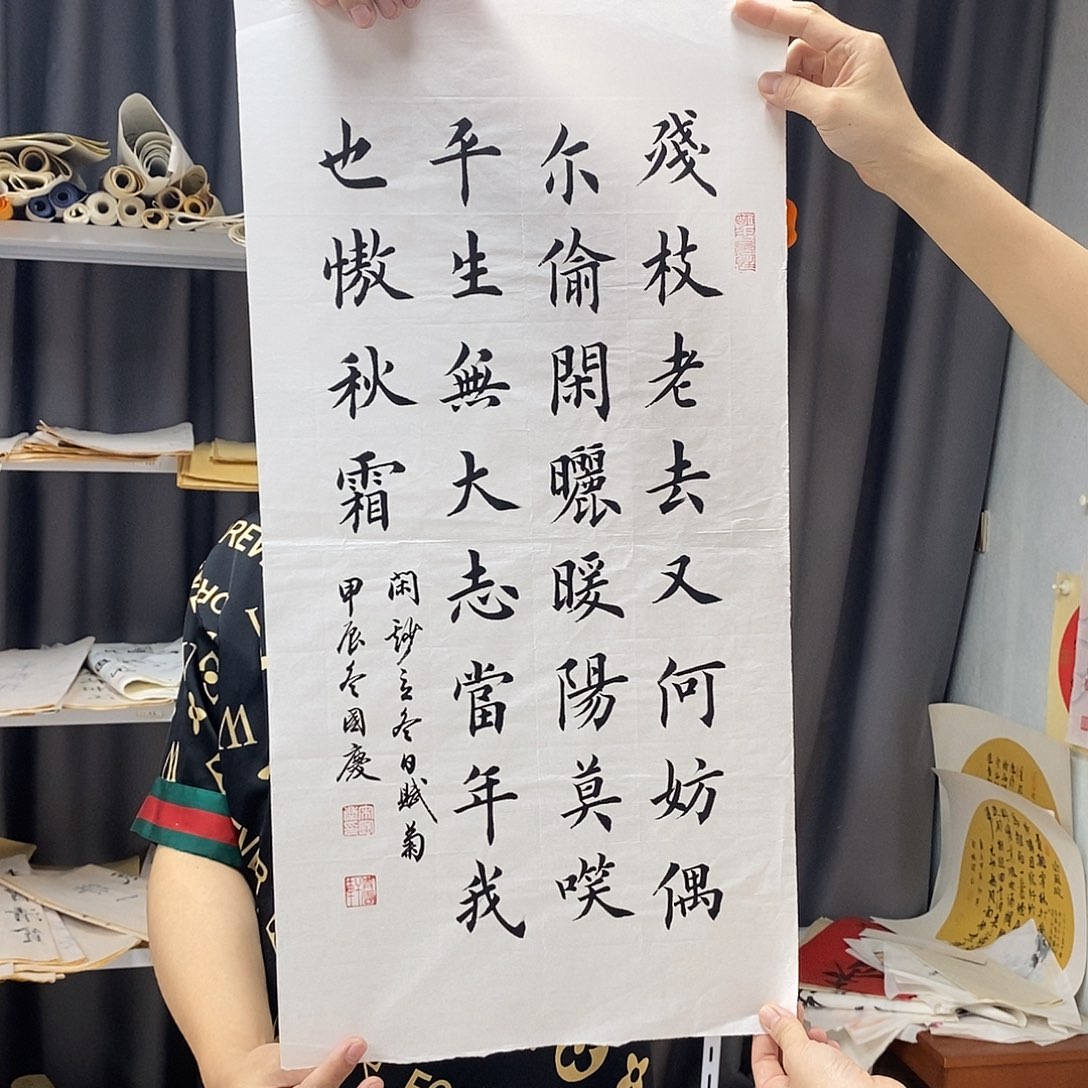 殘枝老去又何妨偶
尓偷閑曬暖陽莫笑
平生無大志當年我
也傲秋霜
閑抄立冬日賦菊
甲辰冬國慶